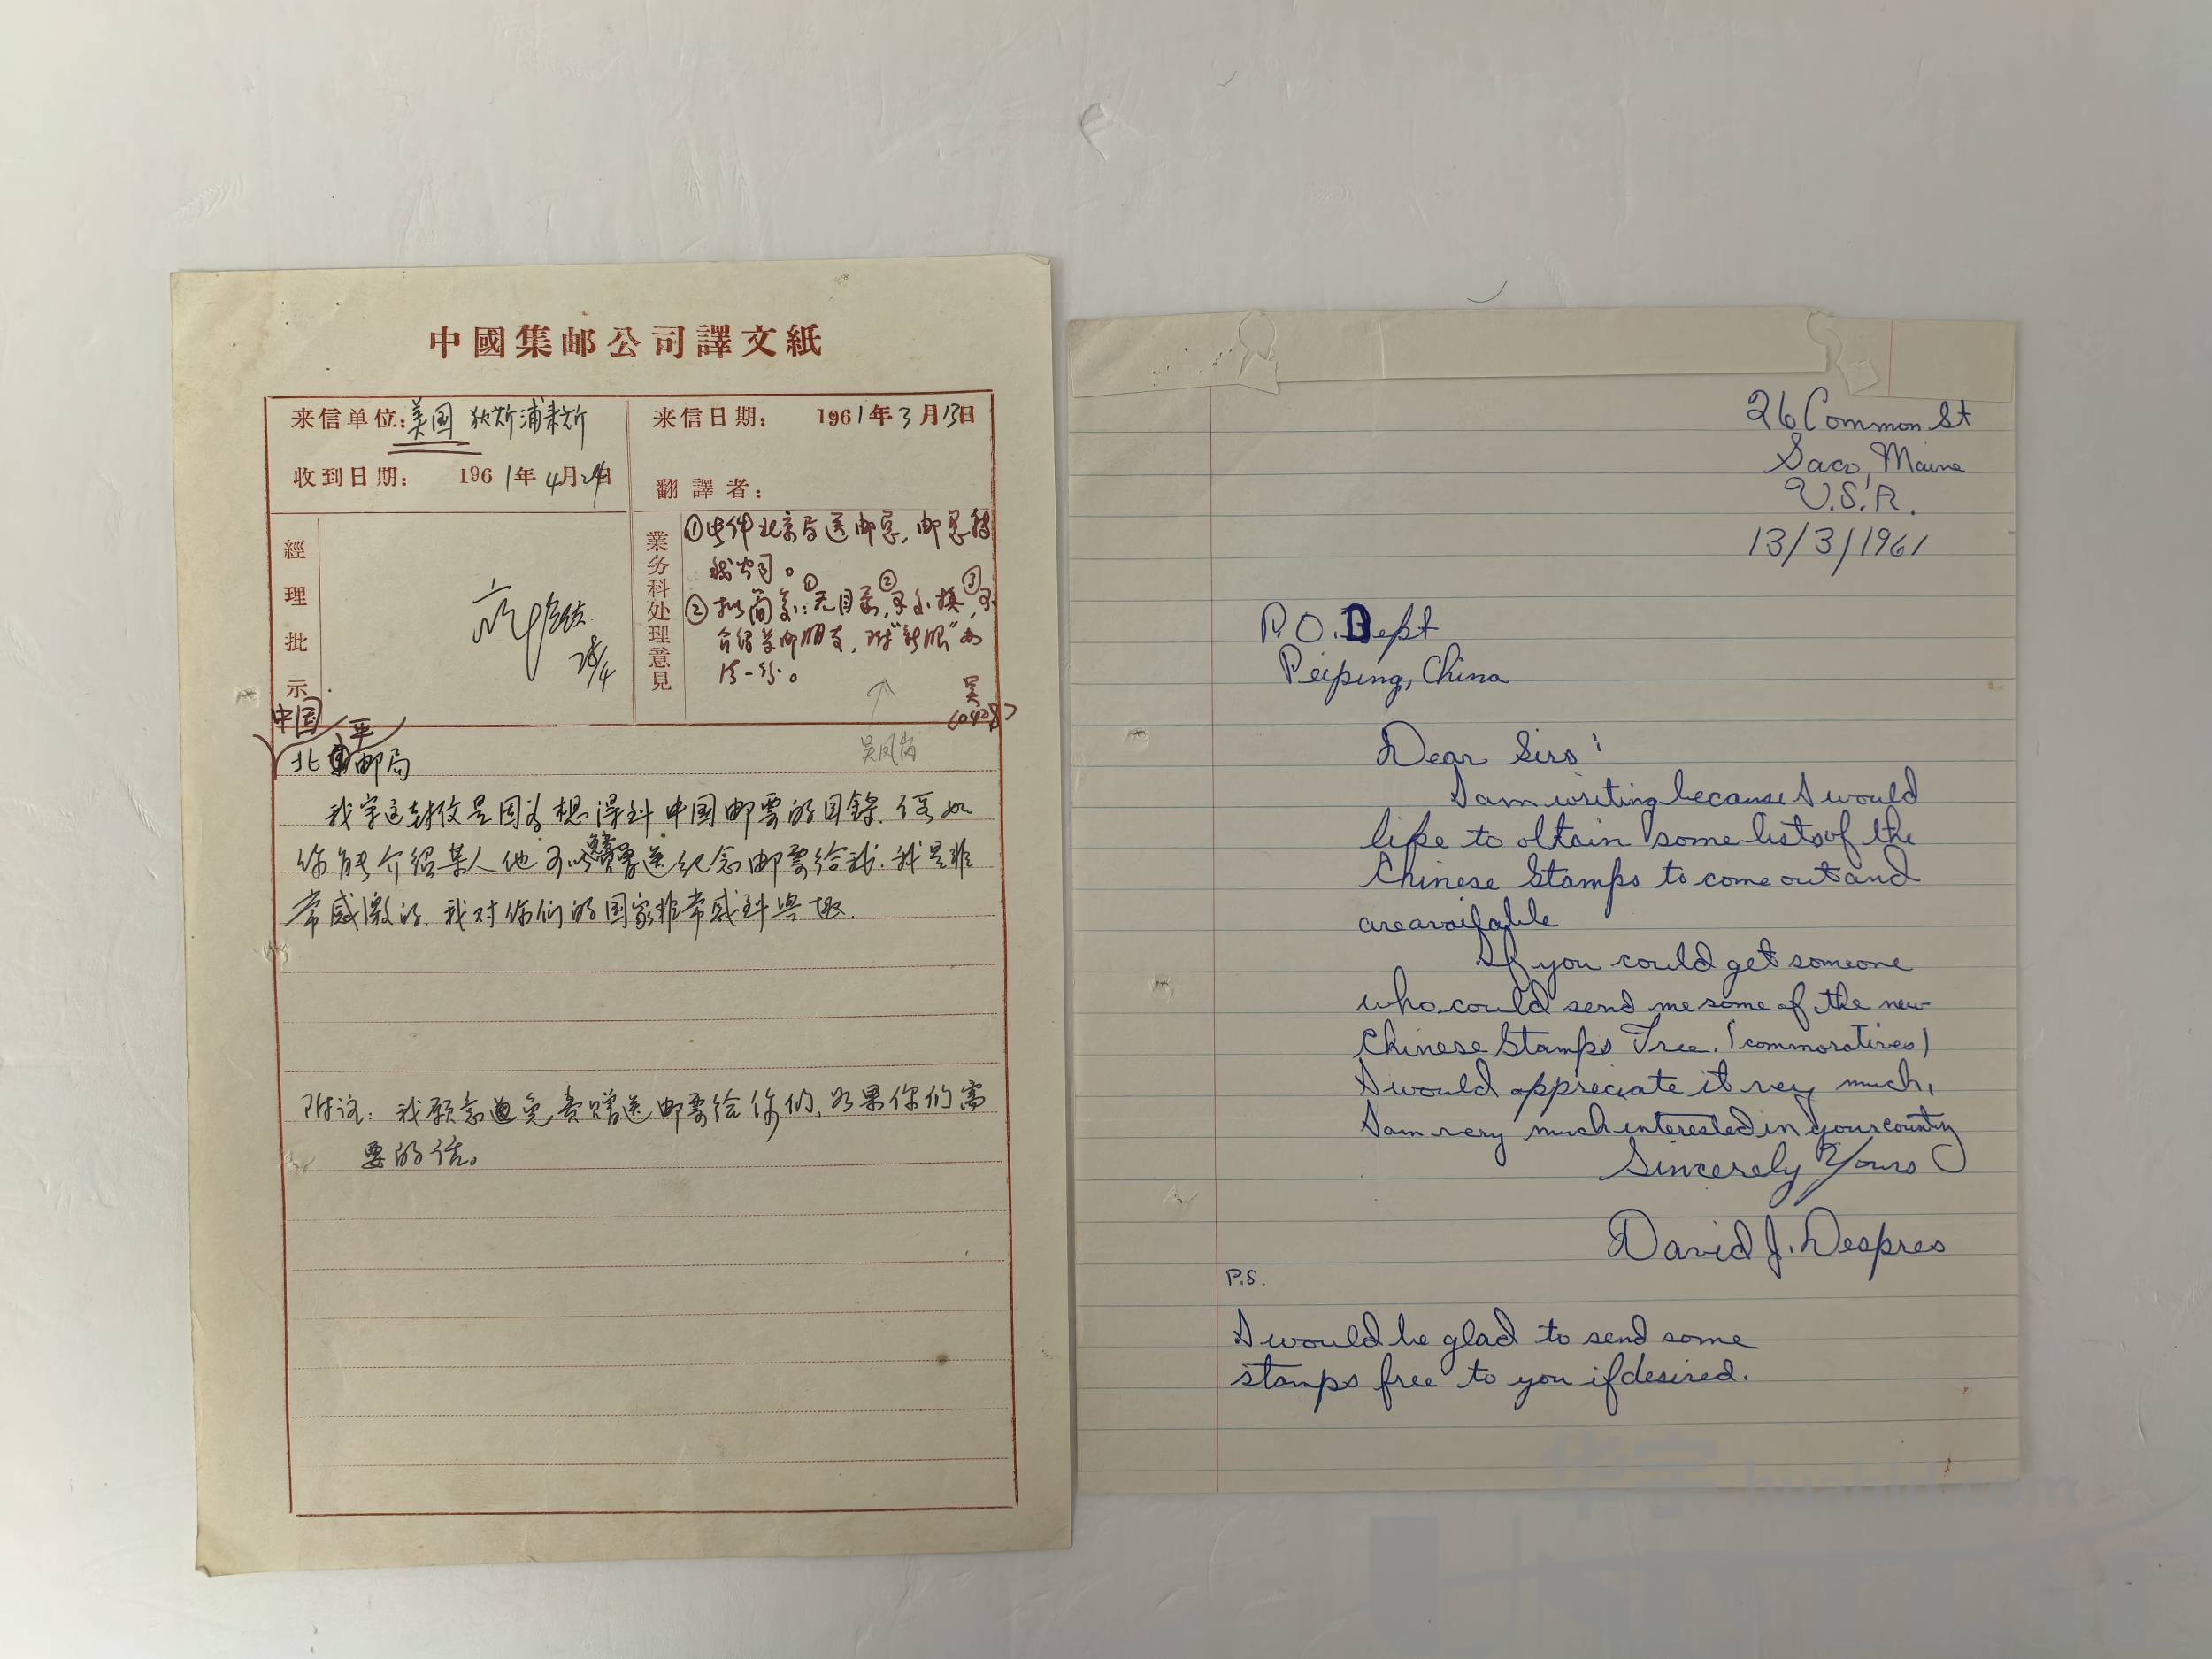 中國集邮公司譯文紙
来信单位:美国 狄斯浦来斯
来信日期: 1961年3月13日
收到日期: 1961年4月24日
翻譯者:
經理批示
28/4
業务科处理意見
①此件北京局送邮总,邮总转
我公司。
②拟简复:①无目录,②不交换,③不
介绍集邮朋友,附"新眼"
吴
吴凤岗
中国
平
北邮局
我写这封信是因为想得到中国邮票的目錄.假如
你能介绍某人他可以免费赠送纪念邮票给我.我是非
常感激的.我对你们的国家非常感到兴趣.
附注:我愿意免费赠送邮票给你们,如果你们需
要的话。
26 Common St
Saco, Maine
U.S.A.
13/3/1961
P.O. Dept
Peiping, China
Dear Sirs:
I am writing because I would
like to obtain some lists of the
Chinese Stamps to come out and
are available
If you could get someone
who could send me some of the new
Chinese Stamps Free. (commoratives)
I would appreciate it very much,
I am very much interested in your country
Sincerely Yours
David J. Despres
P.S.
I would be glad to send some
stamps free to you if desired.
华宇